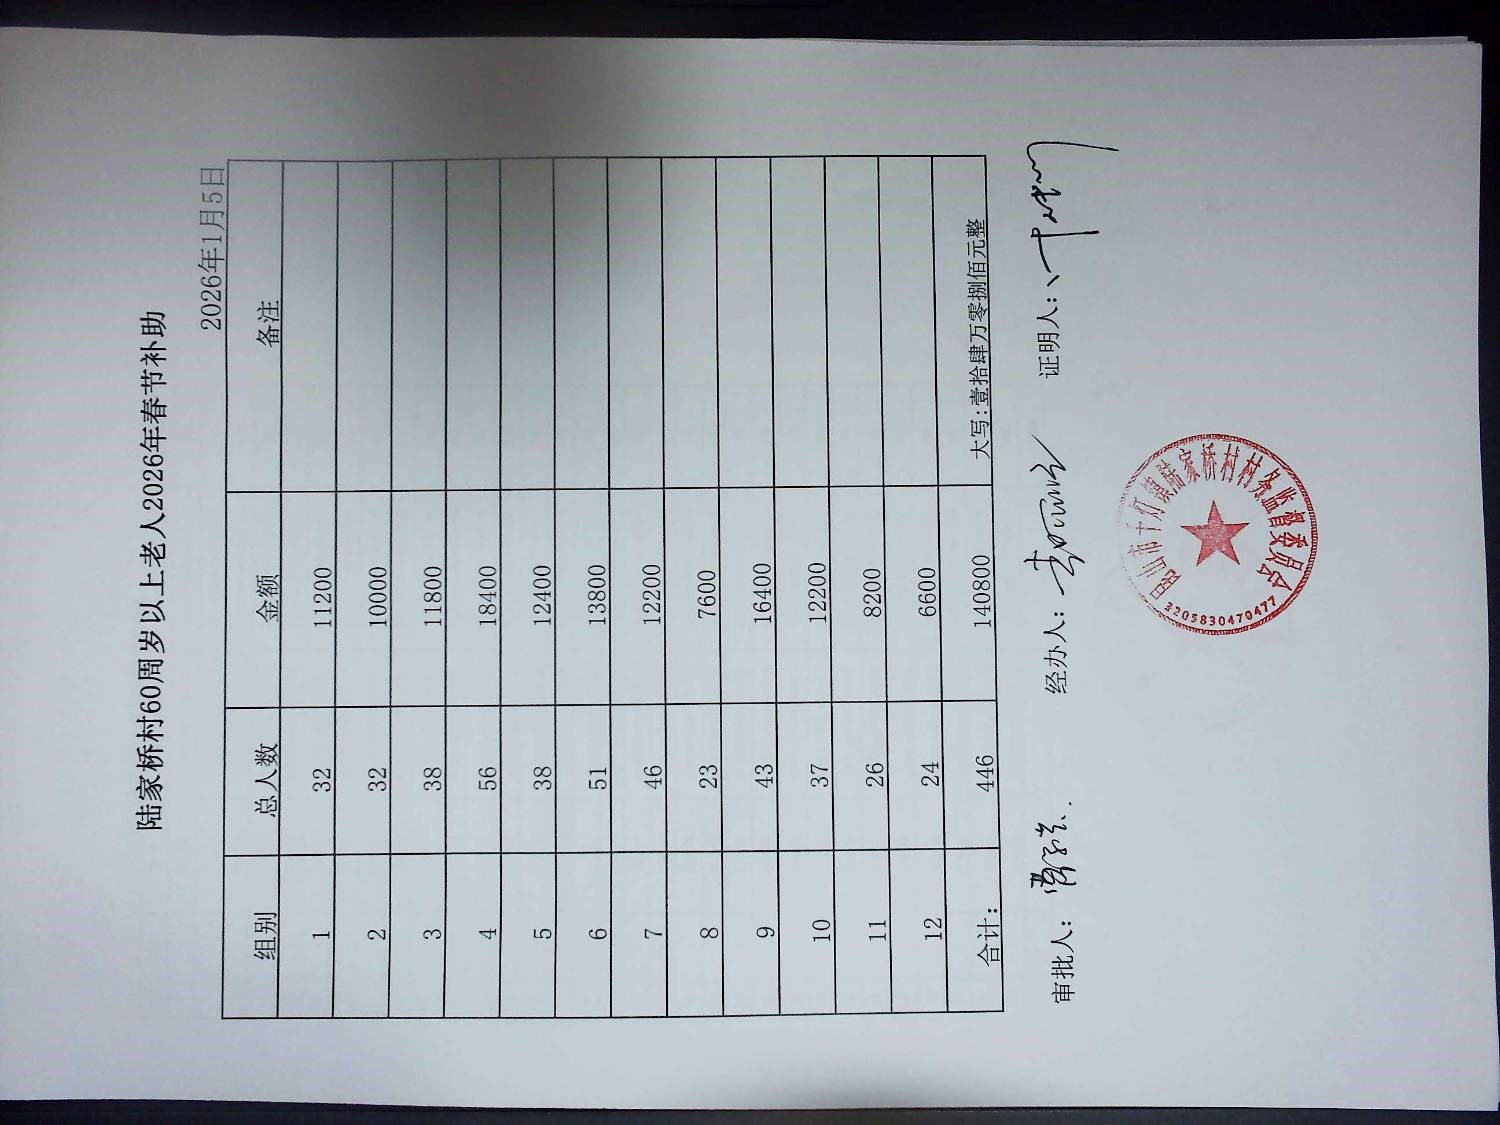 陆家桥村60周岁以上老人2026年春节补助
2026年1月5日
组别 总人数 金额 备注
1 32 11200
2 32 10000
3 38 11800
4 56 18400
5 38 12400
6 51 13800
7 46 12200
8 23 7600
9 43 16400
10 37 12200
11 26 8200
12 24 6600
合计： 446 140800 大写:壹拾肆万零捌佰元整
审批人： 经办人： 证明人：
昆山市千灯镇陆家桥村村务监督委员会
3205830470477